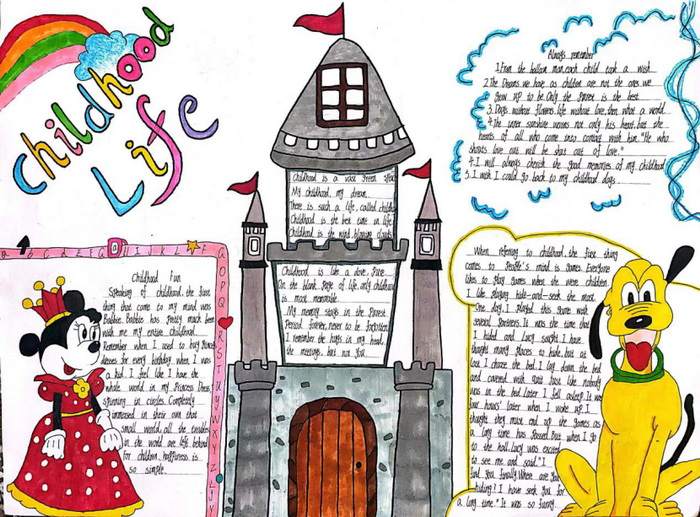 Childhood
Life
Childhood Fun
Speaking of childhood, the first
thing that came to my mind was
Barbie. Barbie has pretty much been
with me my entire childhood.
Remember when I used to buy Princess
dresses for every birthday when I was
a kid. I feel like I have the
whole world in my Princess Dress
spinning in circles. Completely
immersed in their own that
small world, all the troubles
in the world are left behind
For children, happiness is
so simple.
Childhood is a vast green
My childhood, my dream.
There is such a life, called
Childhood is the best time in life.
Childhood is the wind blowing clouds
Childhood is like a dove, Pure.
On the blank page of life, only childhood
is most memorable.
My memory stays in the Purest
Period forever, never to be forgotten.
I remember the hops in my head,
the meetings, but not you.
Always remember
1. From the balloon man, each child took a wish.
2. The Dreams we have as children are not the ones we
grow up to be. Only the Purest is the best.
3. Days without flowers, life without love, then what a world.
4. The inner sunshine warms not only his heart, but the
hearts of all who come into contact with him. "He who
shouts love out will be shut out of love."
4. I will always cherish the good memories of my childhood.
5. I wish I could go back to my childhood days.
When referring to childhood, the first thing
comes to People's mind is games. Everyone
likes to Play games when they were children.
I like playing hide-and-seek the most.
One day, I Played this game with
several Partners. It was the time that
I hided and Lucy sought. I have
thought many places to hide, but at
last I chose the bed. I lay down the bed
and covered with quilt just like nobody
was in the bed. Later I fell asleep. It was
four hours' later when I woke up. I
thought they must end up the games as
a long time has passed. But when I go
to the hall, Lucy was excited
to see me and said, "I
find you finally. Where are you
hiding? I have seek you for
a long time." It was so funny.
O P Q R S T U V W X Y Z